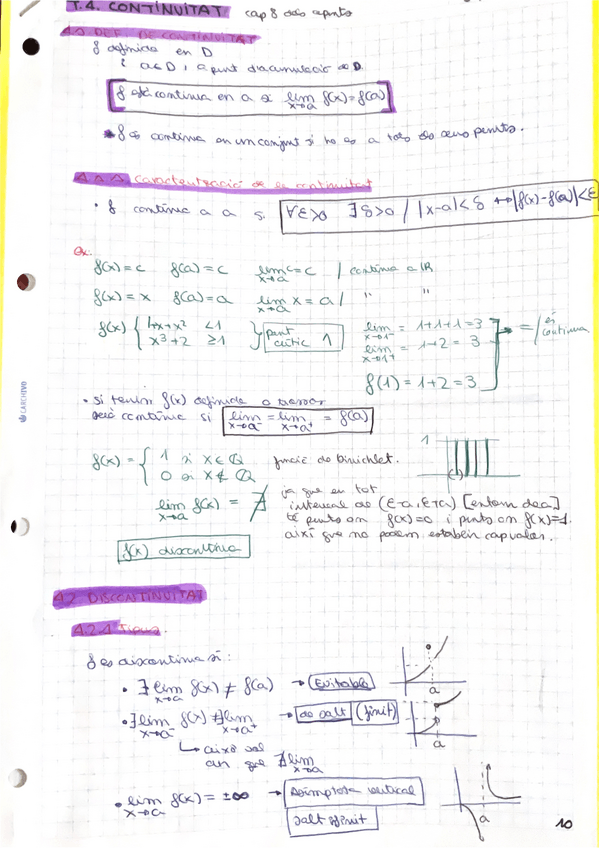 T.4. CONTINUÏTAT cap 8 dels apunts
4.1 DEF. DE CONTINUÏTAT
f definida en D
i a∈D, a punt d'acumulació de D.
f és contínua en a si lim x→a f(x)=f(a)
f és contínua en un conjunt si ho és a tots els seus punts.
4.1.1 Caracterització de la continuïtat
• f contínua a a si ∀ε>0 ∃δ>0 / |x-a|<δ ↔ |f(x)-f(a)|<ε
Ex:
f(x)=c f(a)=c lim x→a c=c / contínua a ℝ
f(x)=x f(a)=a lim x→a x=a / " "
f(x) { 1+x+x² <1
x³+2 ≥1 } punt crític 1
lim x→1⁻ = 1+1+1=3
lim x→1⁺ = 1+2=3
f(1)=1+2=3
= / és contínua
• si tenim f(x) definida a trossos
serà contínua si lim x→a⁻ = lim x→a⁺ = f(a)
f(x) = { 1 si x∈ℚ
0 si x∉ℚ funció de Dirichlet.
1
lim x→a f(x) = ∄ ja que en tot
interval de (ε-a, ε+a) [entorn de a]
té punts on f(x)=0 i punts on f(x)=1.
així que no podem establir cap valor.
f(x) discontínua
4.2 DISCONTINUÏTAT
4.2.1 Tipus.
f és discontínua si:
• ∃ lim x→a f(x) ≠ f(a) → Evitable
a
• ∃ lim x→a⁻ f(x) ≠ ∃ lim x→a⁺ → de salt (finit)
a
↳ això vol
dir que ∄ lim x→a
• lim x→a f(x) = ±∞ → Asímptota vertical
salt infinit
a
10
CARCHIVO